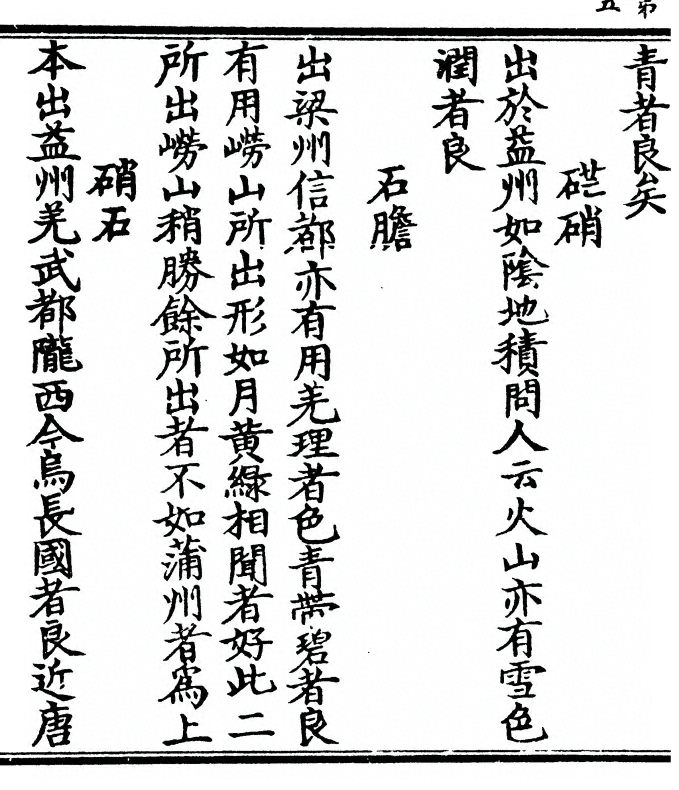 第
五
青者良矣
硭硝
出於益州如陰地積問人云火山亦有雪色
潤者良
石膽
出梁州信都亦有用羌理者色青帶碧者良
有用嶗山所出形如月黃綠相聞者好此二
所出嶗山稍勝餘所出者不如蒲州者爲上
硝石
本出益州羌武都隴西今烏長國者良近唐